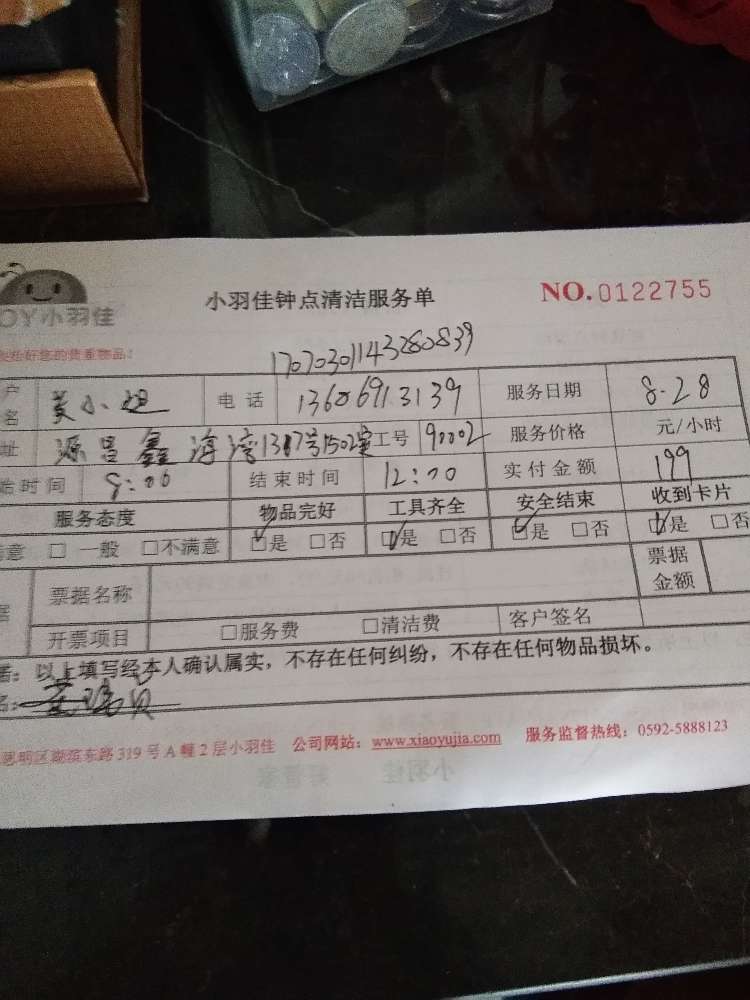 小羽佳钟点清洁服务单 NO.0122755
OY小羽佳
您的贵重物品!
17070301143280839
户名 小姐 电话 13606913139 服务日期 8.28
址 源昌鑫海湾13号1502室 工号 90002 服务价格 元/小时
始时间 8:00 结束时间 12:00 实付金额 199
服务态度 物品完好 工具齐全 安全结束 收到卡片
意 □ 一般 □不满意 □是 □否 □是 □否 □是 □否 □是 □否
据 票据名称 票据金额
开票项目 □服务费 □清洁费 客户签名
诺:以上填写经本人确认属实,不存在任何纠纷,不存在任何物品损坏。
名:
思明区湖滨东路319号A幢2层小羽佳 公司网站:www.xiaoyujia.com 服务监督热线:0592-5888123